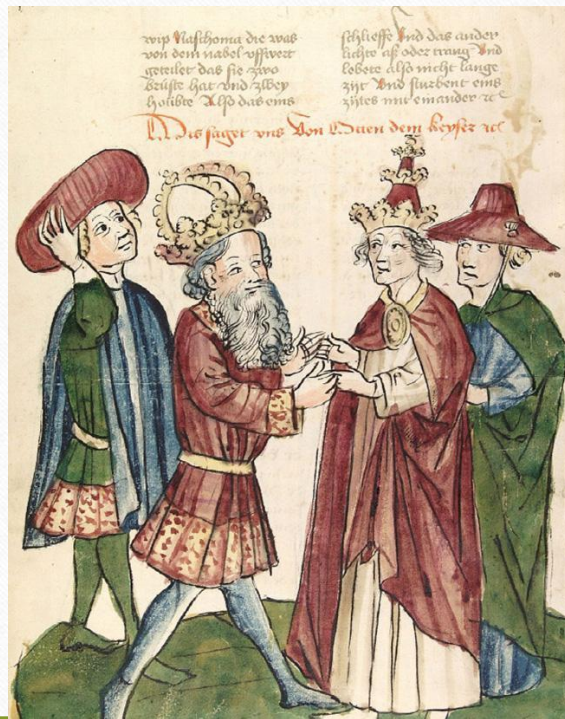 wip Naschoma die was
von dem nabel vffwert
geteilet das sie zwo
brüste hat vnd zwey
houbte Also das eins
schlieffe vnd das ander
lichte aß oder trang vnd
lebete also nicht lange
zijt vnd sturbent eins
zijtes mit einander ꝛc
Dis saget vns Von Otten dem keyser ꝛc